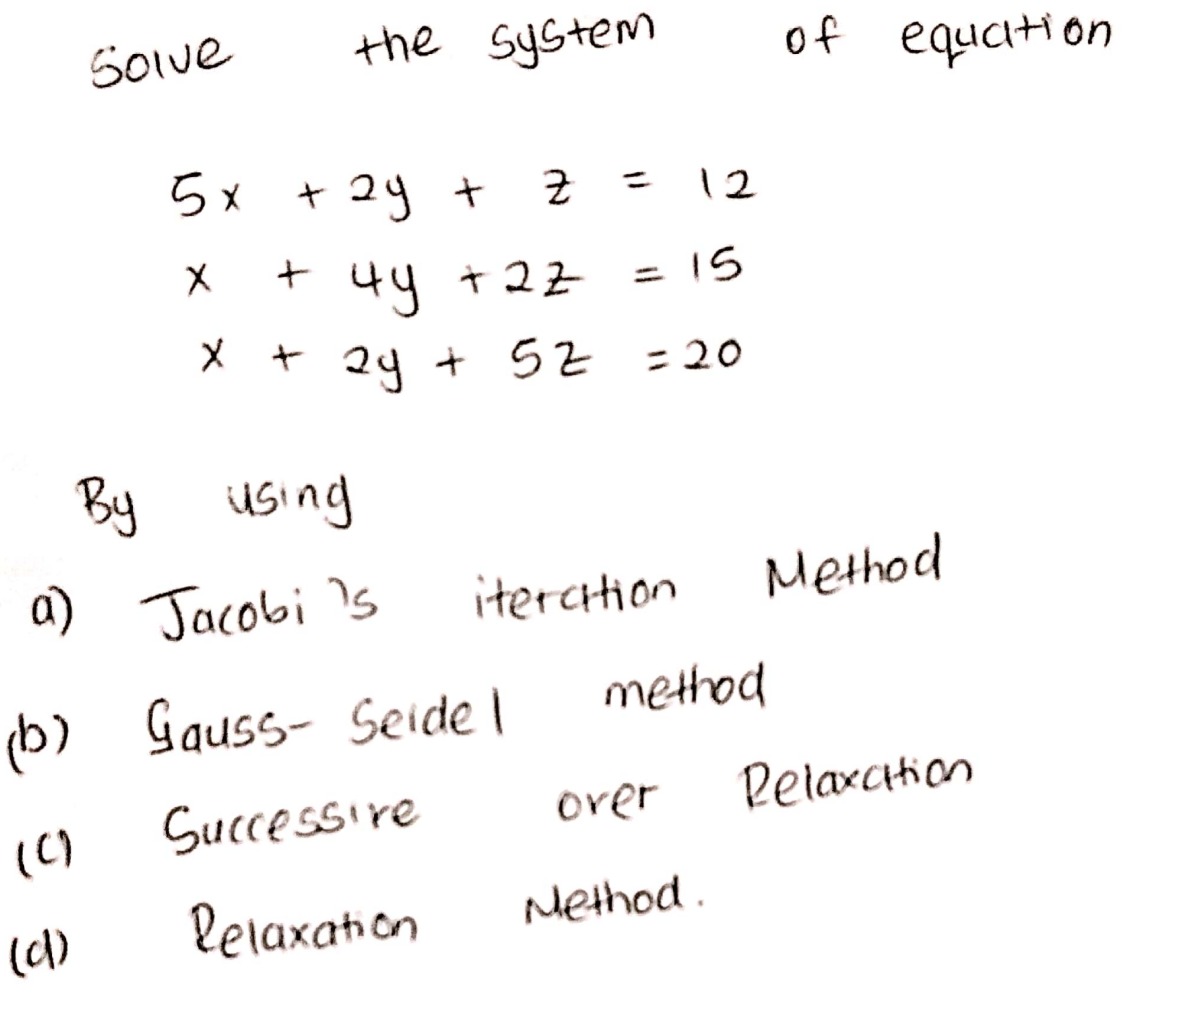 Solve the system of equation
5x + 2y + z = 12
x + 4y + 2z = 15
x + 2y + 5z = 20
By using
a) Jacobi's iteration Method
(b) Gauss-Seidel method
(c) Successire over Relaxation
(d) Relaxation Method.